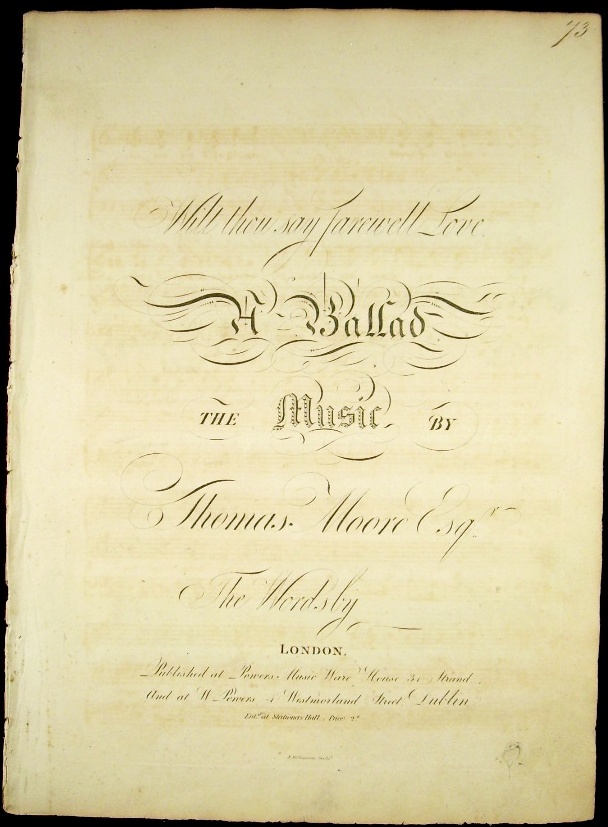 73
Wilt thou say farewell Love
A Ballad
THE Music BY
Thomas Moore Esqr
The Words by
LONDON.
Published at Powers Music Ware House 34 Strand.
And at W Powers 4 Westmorland Street Dublin
Entd. at Stationers Hall. Price 2s